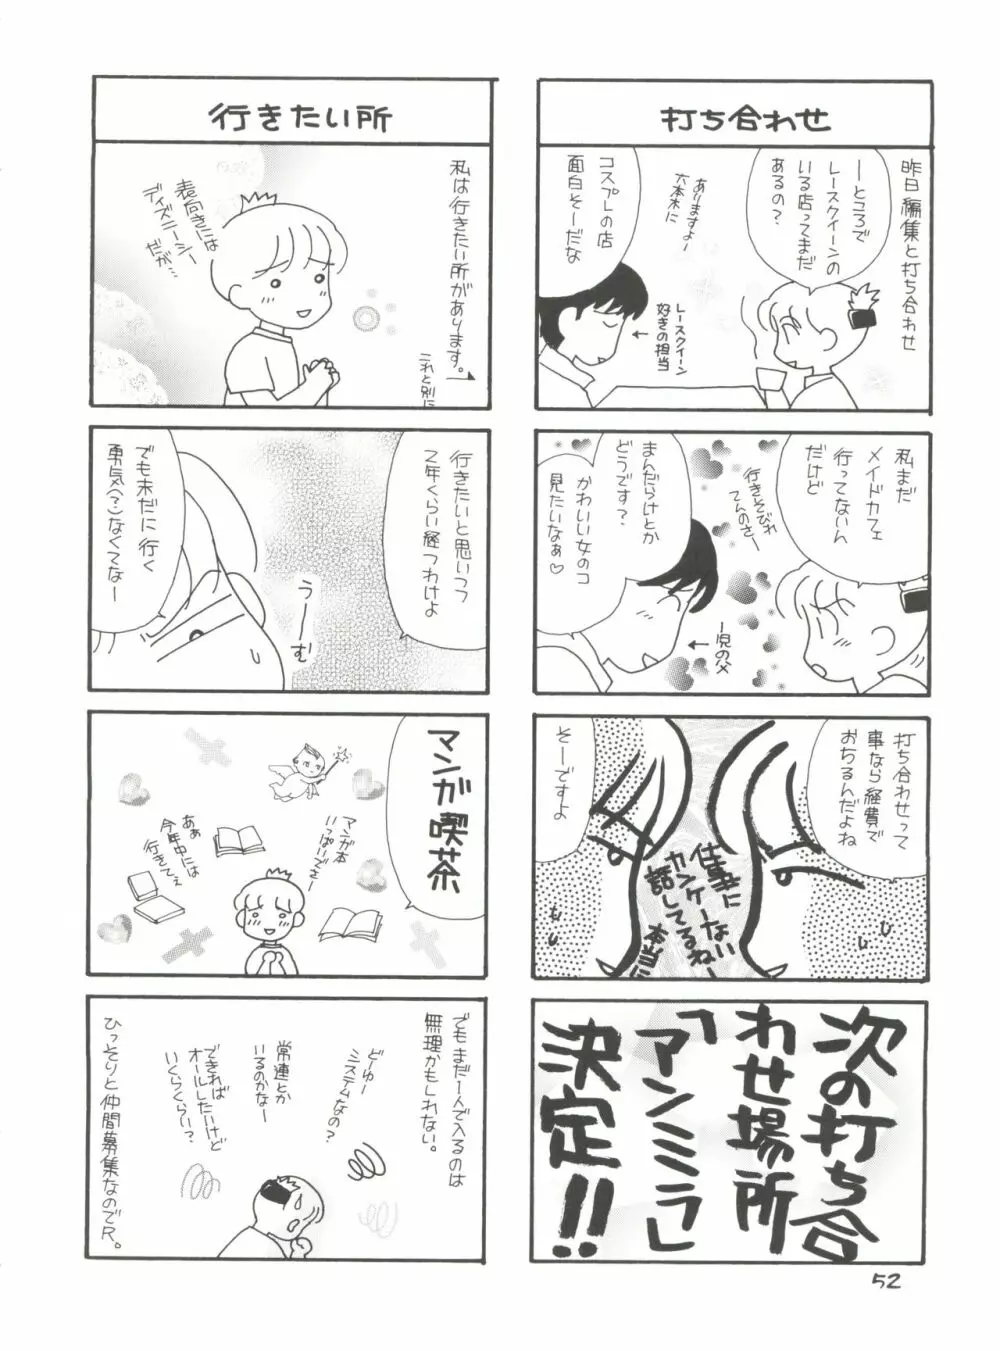 打ち合わせ
昨日編集と打ち合わせ
―ところで
レースクイーンの
いる店ってまだ
あるの?
ありますよー
六本木に
コスプレの店
面白そーだな
レースクイーン
好きの担当
私まだ
メイドカフェ
行ってないん
だけど
行きそびれ
てんのさー
まんだらけとか
どうです?
かわいい女のコ
見たいなぁ♡
一児の父
打ち合わせって
事なら経費で
おちるんだよね
そーですよ
仕事に
カンケーない
話してるねー
本当に
次の打ち合
わせ場所
「アンミラ」
決定!!
行きたい所
私は行きたい所があります。
これと別に
表向きには
ディズニーシー
だが…
行きたいと思いつつ
2年くらい経つわけよ
うーーむ
でも未だに行く
勇気(?)なくてなー
マンガ喫茶
マンガ本
いっぱいでさー
あぁ
今年中には
行きてぇ
でもまだ一人で入るのは
無理かもしれない。
どーゆー
システムなの?
常連とか
いるのかなー
できれば
オールしたいけど
いくらくらい?
ひっそりと仲間募集なのでR。
52